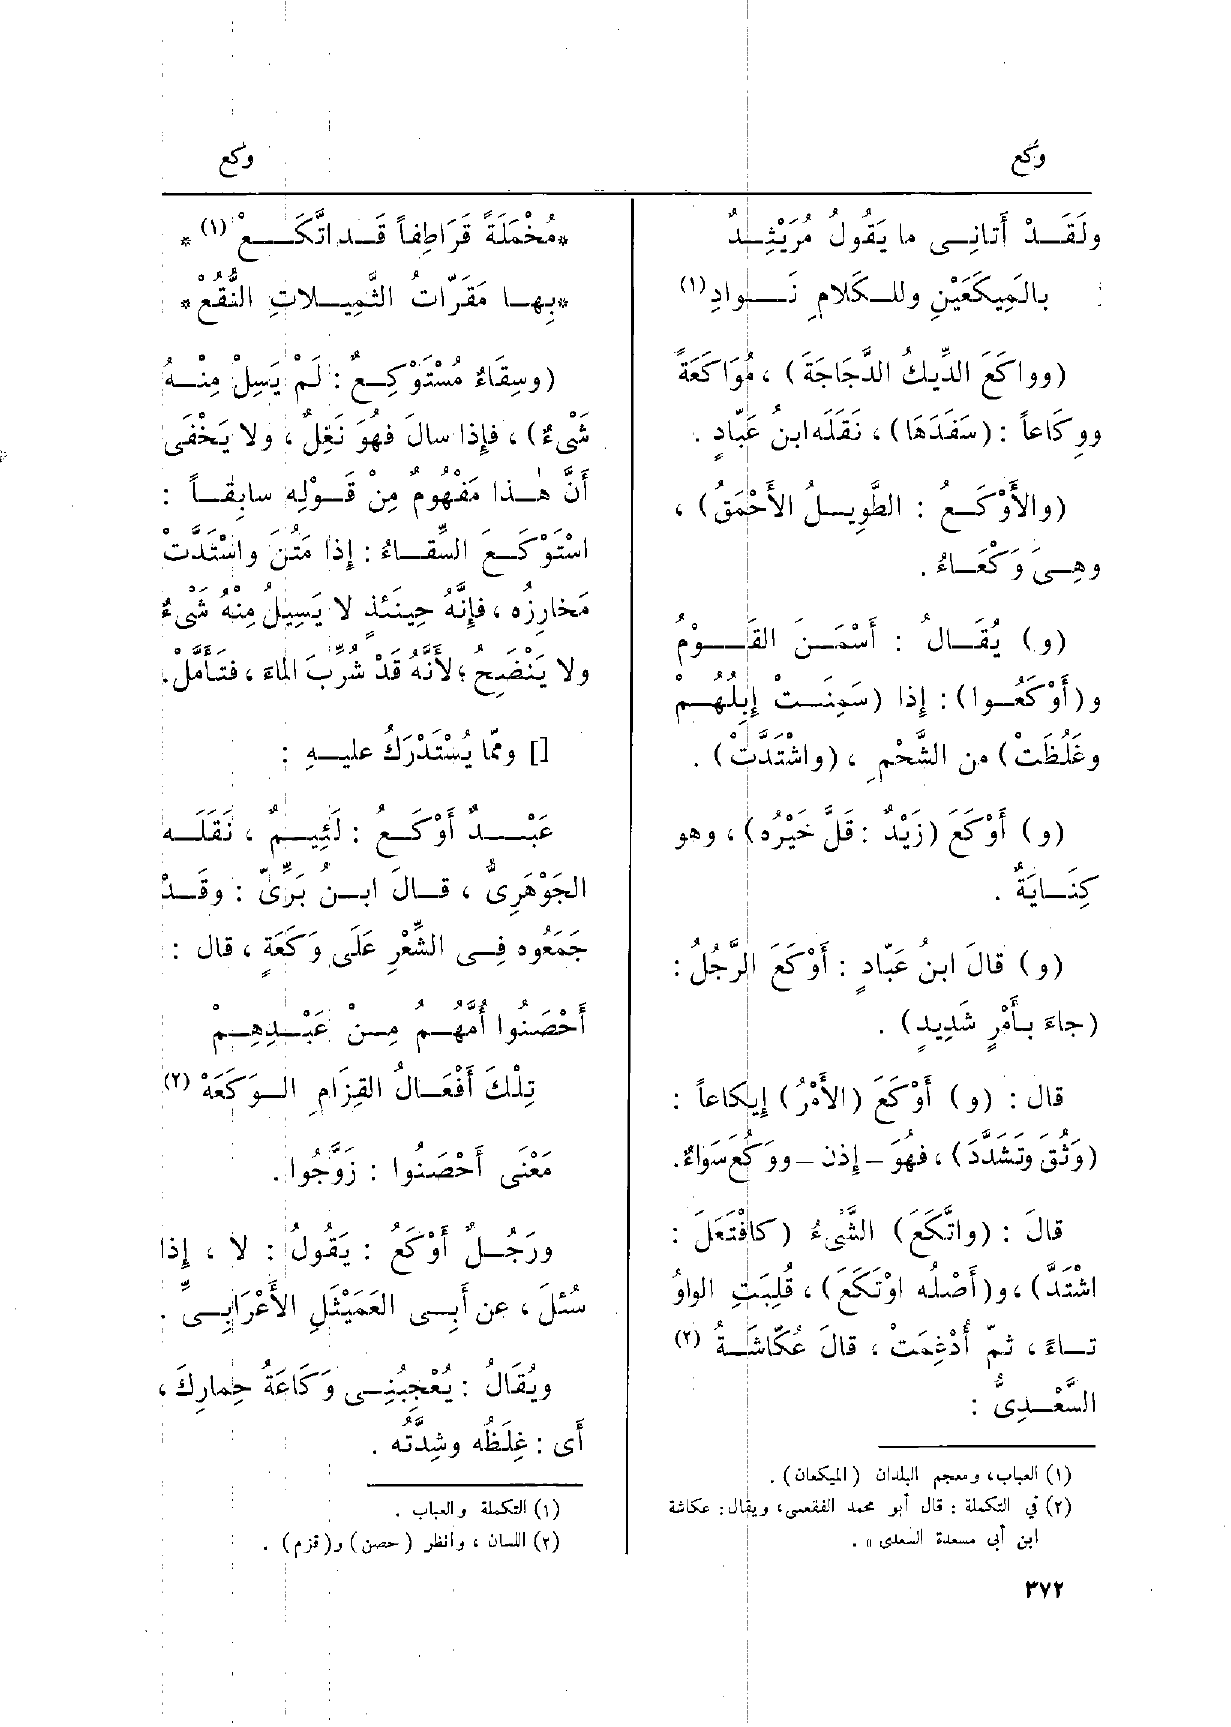 وكع
وكع
ولَقَـدْ أَتانِـى ما يَقُولُ مُرَيْثِـدٌ
بالمِيكَعَيْنِ وللـكَلامِ نَـوادِ(١)
(وواكَعَ الدِّيكُ الدَّجَاجَةَ) ، مُوَاكَعَةً
ووِكَاعاً : (سَفَدَهَا) ، نَقَلَه ابنُ عَبّادٍ .
(والأَوْكَـعُ : الطَّوِيـلُ الأَحْمَقُ) ،
وهِـىَ وَكْعَـاءُ .
(و) يُقَـالُ : أَسْمَـنَ القَـوْمُ
و(أَوْكَعُـوا) : إِذا (سَمِنَـتْ إِبِلُهُـمْ
وغَلُظَتْ) من الشَّحْمِ ، (واشْتَدَّتْ) .
(و) أَوْكَعَ (زَيْدٌ : قَلَّ خَيْرُه) ، وهو
كِنَـايَةٌ .
(و) قالَ ابنُ عَبّادٍ : أَوْكَعَ الرَّجُلُ :
(جاءَ بـأَمْرٍ شَدِيدٍ) .
قال : (و) أَوْكَعَ (الأَمْرُ) إِيكاعاً :
(وَثُقَ وتَشَدَّدَ) ، فهُوَ - إذن - ووَكُعَ سَواءٌ .
قالَ : (واتَّكَعَ) الشَّىءُ (كافْتَعَلَ :
اشْتَدَّ) ، و(أَصْلُه اوْتَكَعَ) ، قُلِبَتِ الواوُ
تـاءً ، ثمّ أُدْغِمَتْ ، قالَ عُكّاشَـةُ (٢)
السَّعْـدِىُّ :
(١) العباب، ومعجم البلدان (الميكعان) .
(٢) فى التكملة : قال أبو محمد الفقعسى، ويقال: عكاشة
ابن أبى مسعدة السعدى » .
*مُخْمَلَةً قَرَاطِفاً قَـد اتَّكَـعْ (١) *
*بِهـا مَقَرّاتُ الثَّمِيـلاتِ النُّقُعْ*
(وسِقَاءٌ مُسْتَوْكِـعٌ : لَمْ يَسِلْ مِنْـهُ
شَىْءٌ) ، فإِذا سالَ فهُوَ نَغِلٌ ، ولا يَخْفَى
أَنَّ هـٰذا مَفْهُومٌ مِنْ قَـوْلِه سابِقـاً :
اسْتَوْكَـعَ السِّقـاءُ : إِذا مَتُنَ واشْتَدَّت
مَخارِزُه ، فإِنَّهُ حِينَئذٍ لا يَسِيلُ مِنْهُ شَىْءٌ
ولا يَنْضِحُ ؛ لأَنَّهُ قَدْ شُرِّبَ الماءَ ، فتَأَمَّلْ .
[] وممّا يُسْتَدْرَكُ عليـهِ :
عَبْـدٌ أَوْكَـعُ : لَئِيـمٌ ، نَقَلَـه
الجَوْهَرِىُّ ، قـالَ ابـنُ بَرِّىّ : وقَـدْ
جَمَعُوه فِـى الشِّعْرِ عَلَى وَكَعَةٍ ، قال :
أَحْصَنُوا أُمَّهُـمُ مِـنْ عَبْـدِهِـمْ
تِلْكَ أَفْعَـالُ القِزَامِ الـوَكَعَهْ (٢)
مَعْنَى أَحْصَنُوا : زَوَّجُوا .
ورَجُـلٌ أَوْكَعُ : يَقُولُ : لا ، إِذا
سُئلَ ، عن أَبِـى العَمَيْثَلِ الأَعْرَابِـىِّ .
ويُقَالُ : يُعْجِبُنِـى وَكَاعَةُ حِمارِكَ ،
أَى : غِلَظُه وشِدَّتُه .
(١) التكملة والعباب .
(٢) اللسان ، وانظر (حصن) و(قزم) .
٣٧٢